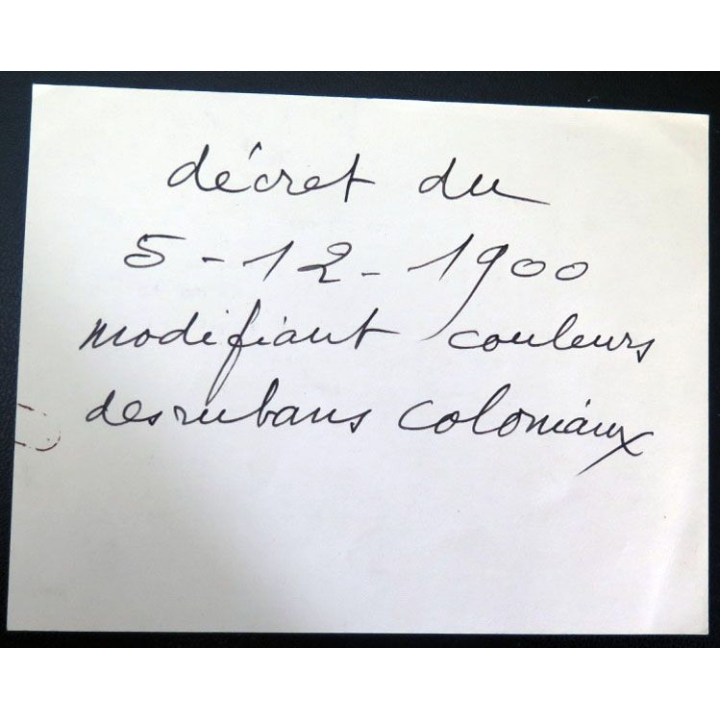 décret du
5-12-1900
modifiant couleurs
des rubans coloniaux